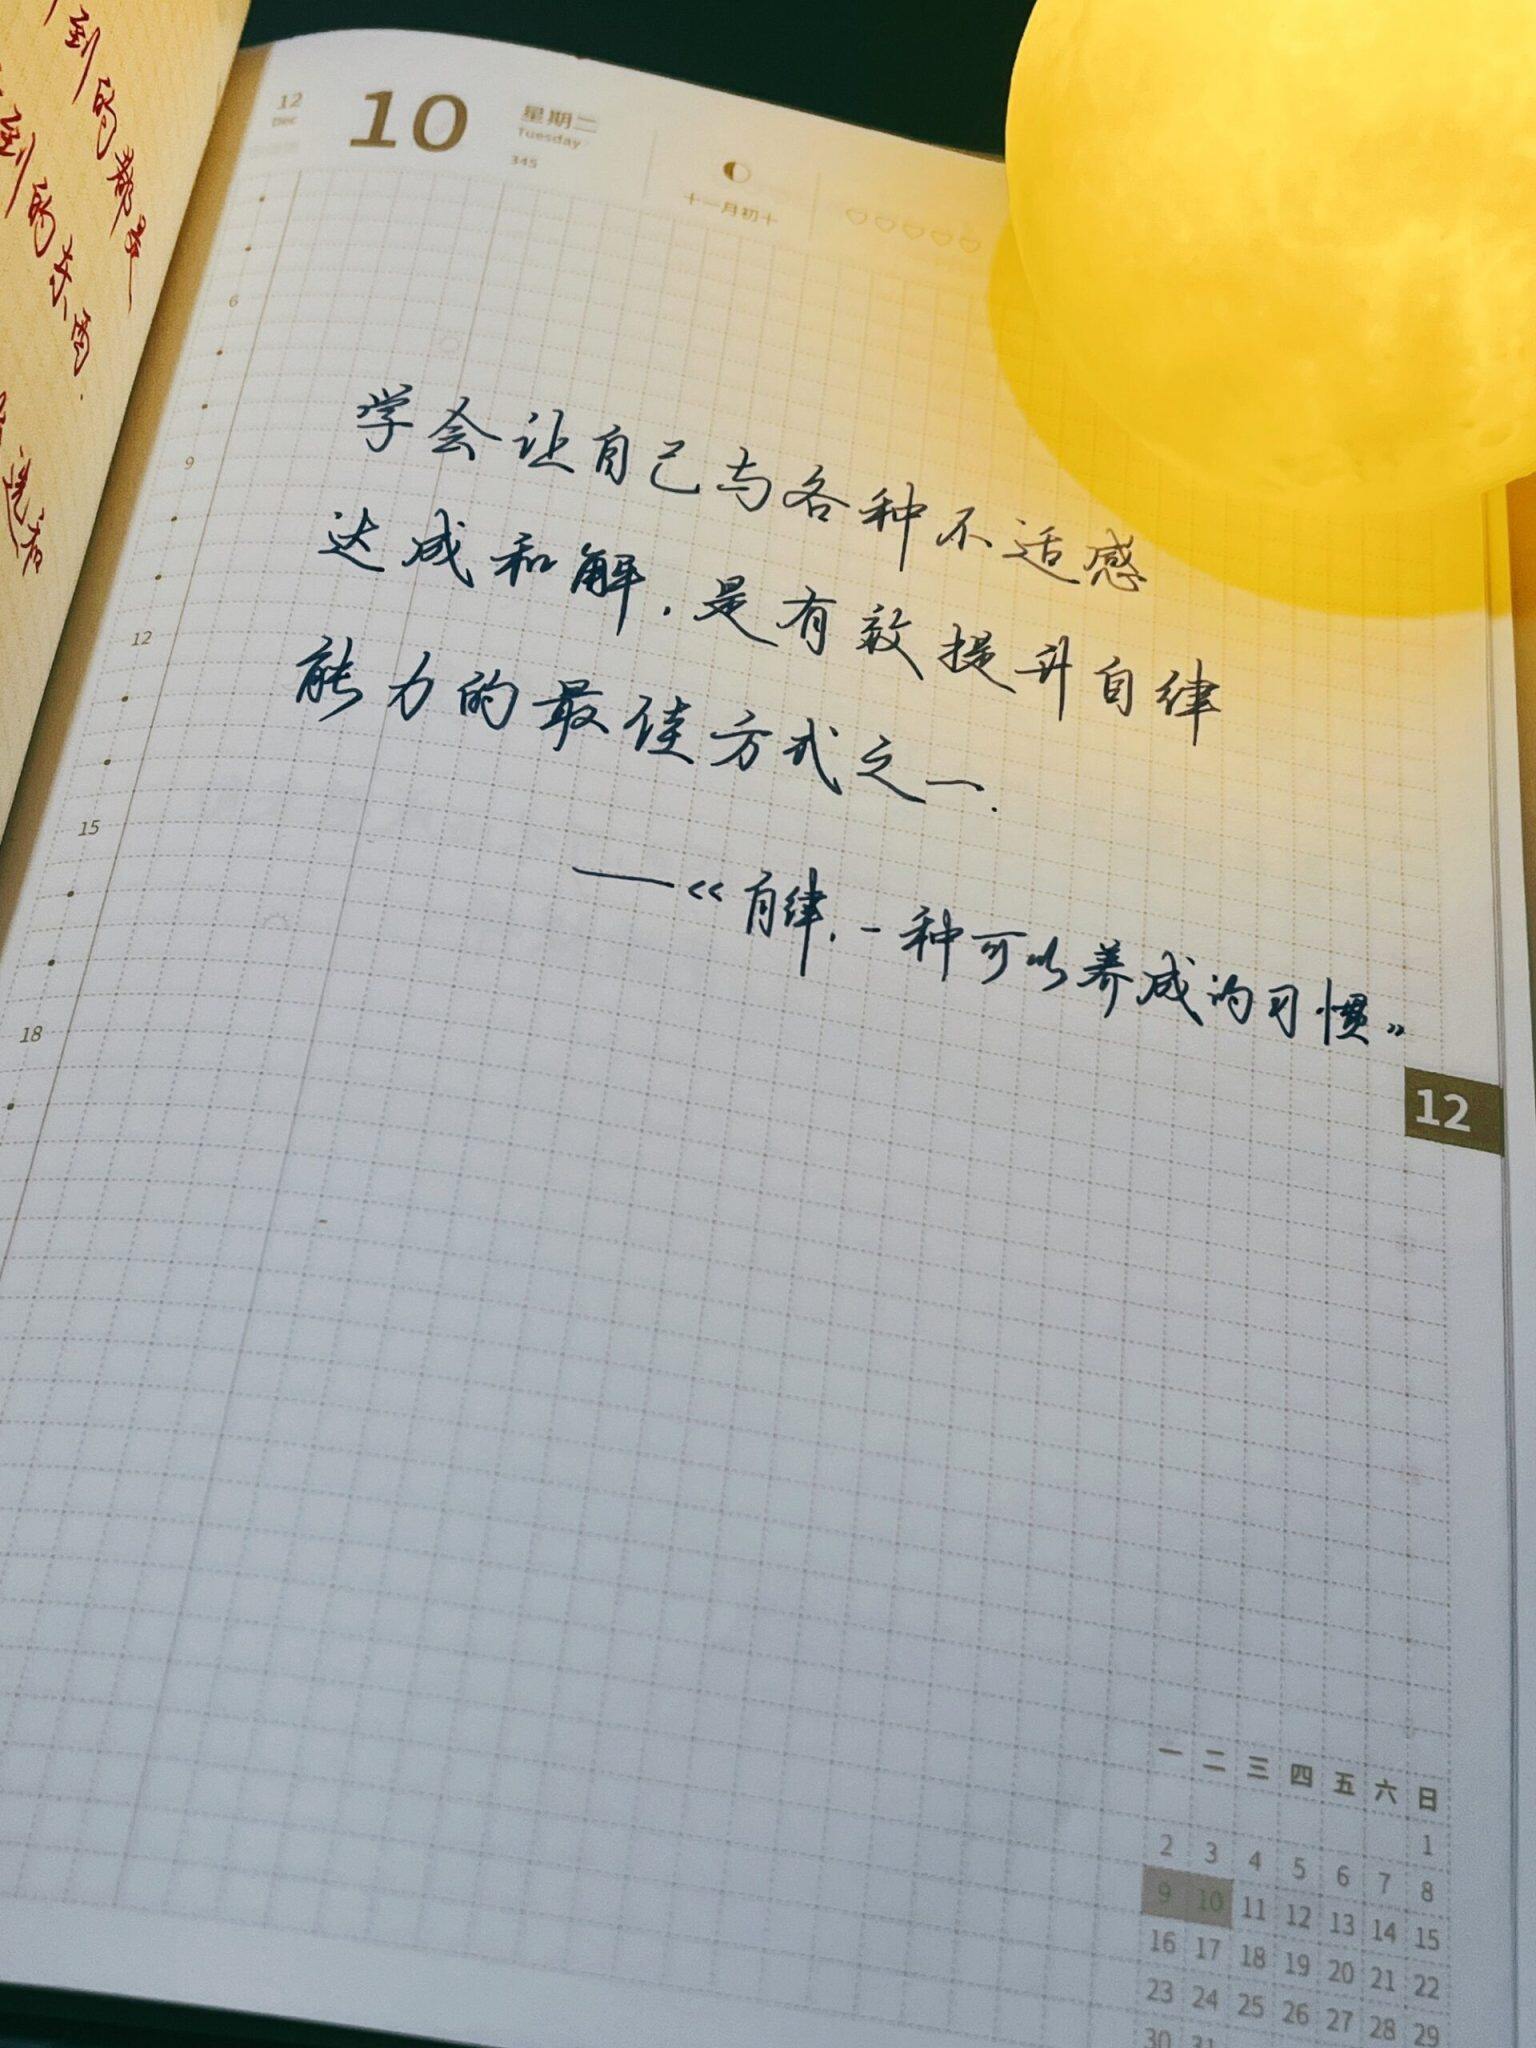 到的都是
到的东西.
12
Dec
10
星期二
Tuesday
345
十一月初十
6
9
12
15
18
学会让自己与各种不适感
达成和解.是有效提升自律
能力的最佳方式之一.
——《自律.一种可以养成的习惯》
12
一 二 三 四 五 六 日
1
2 3 4 5 6 7 8
9 10 11 12 13 14 15
16 17 18 19 20 21 22
23 24 25 26 27 28 29
30 31